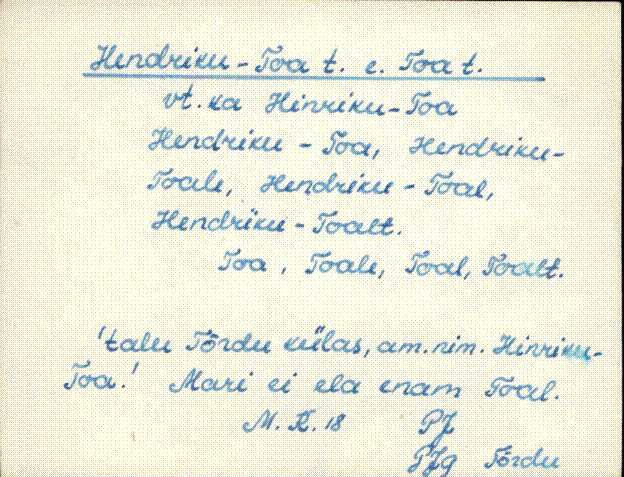 Hendriku-Toa t. e. Toa t.
vt. ka Hinriku-Toa
Hendriku - Toa, Hendriku-
Toale, Hendriku - Toal,
Hendriku - Toalt.
Toa, Toale, Toal, Toalt.
'talu Tõrdu külas, am. nim. Hinriku-
Toa.' Mari ei ela enam Toal.
M. K. 18 PJ
PJg Tõrdu